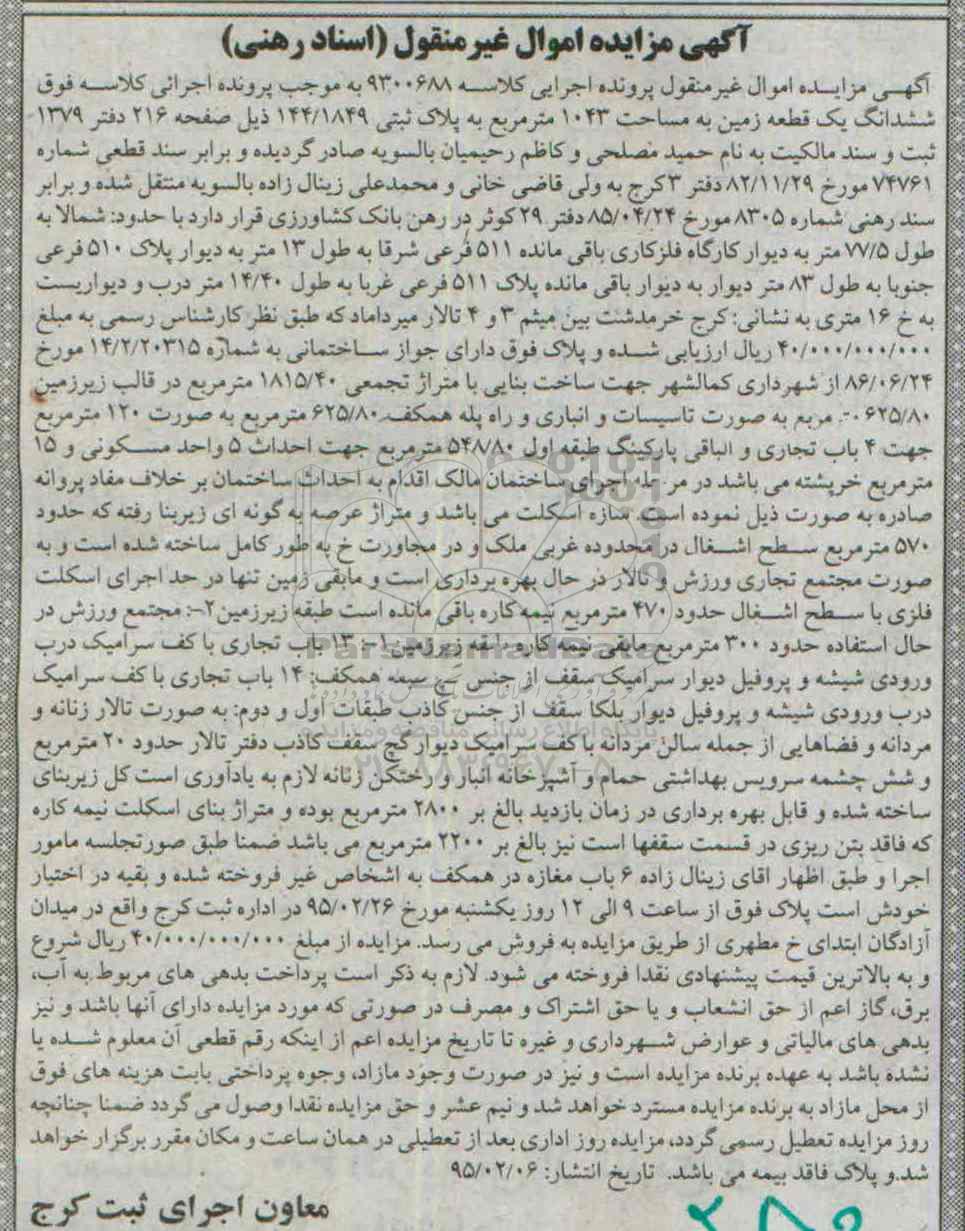 آگهی مزایده اموال غیرمنقول (اسناد رهنی)
آگهی مزایده اموال غیرمنقول پرونده اجرایی کلاسه ۹۳۰۰۶۸۸ به موجب پرونده اجرائی کلاسه فوق
ششدانگ یک قطعه زمین به مساحت ۱۰۴۳ مترمربع به پلاک ثبتی ۱۴۴/۱۸۴۹ ذیل صفحه ۲۱۶ دفتر ۱۳۷۹
ثبت و سند مالکیت به نام حمید مصلحی و کاظم رحیمیان بالسویه صادر گردیده و برابر سند قطعی شماره
۷۴۷۶۱ مورخ ۸۲/۱۱/۲۹ دفتر ۳ کرج به ولی قاضی خانی و محمدعلی زینال زاده بالسویه منتقل شده و برابر
سند رهنی شماره ۸۳۰۵ مورخ ۸۵/۰۴/۲۴ دفتر ۲۹ کوثر در رهن بانک کشاورزی قرار دارد با حدود: شمالا به
طول ۷۷/۵ متر به دیوار کارگاه فلزکاری باقی مانده ۵۱۱ فرعی شرقا به طول ۱۳ متر به دیوار پلاک ۵۱۰ فرعی
جنوبا به طول ۸۳ متر دیوار به دیوار باقی مانده پلاک ۵۱۱ فرعی غربا به طول ۱۴/۴۰ متر درب و دیواریست
به خ ۱۶ متری به نشانی: کرج خرمدشت بین میثم ۳ و ۴ تالار میرداماد که طبق نظر کارشناس رسمی به مبلغ
۴۰/۰۰۰/۰۰۰/۰۰۰ ریال ارزیابی شده و پلاک فوق دارای جواز ساختمانی به شماره ۱۴/۲/۲۰۳۱۵ مورخ
۸۶/۰۶/۲۴ از شهرداری کمالشهر جهت ساخت بنایی با متراژ تجمعی ۱۸۱۵/۴۰ مترمربع در قالب زیرزمین
۶۲۵/۸۰ مربع به صورت تاسیسات و انباری و راه پله همکف ۶۲۵/۸۰ مترمربع به صورت ۱۲۰ مترمربع
جهت ۴ باب تجاری و الباقی پارکینگ طبقه اول ۵۴۸/۸۰ مترمربع جهت احداث ۵ واحد مسکونی و ۱۵
مترمربع خرپشته می باشد در مرحله اجرای ساختمان مالک اقدام به احداث ساختمان بر خلاف مفاد پروانه
صادره به صورت ذیل نموده است. سازه اسکلت می باشد و متراژ عرصه به گونه ای زیربنا رفته که حدود
۵۷۰ مترمربع سطح اشغال در محدوده غربی ملک و در مجاورت خ به طور کامل ساخته شده است و به
صورت مجتمع تجاری ورزش و تالار در حال بهره برداری است و مابقی زمین تنها در حد اجرای اسکلت
فلزی با سطح اشغال حدود ۴۷۰ مترمربع نیمه کاره باقی مانده است طبقه زیرزمین ۲-: مجتمع ورزش در
حال استفاده حدود ۳۰۰ مترمربع مابقی نیمه کاره طبقه زیرزمین ۱-: ۱۳ باب تجاری با کف سرامیک درب
ورودی شیشه و پروفیل دیوار سرامیک سقف از جنس گچ همکف: ۱۴ باب تجاری با کف سرامیک
درب ورودی شیشه و پروفیل دیوار بلکا سقف از جنس کاذب طبقات اول و دوم: به صورت تالار زنانه و
مردانه و فضاهایی از جمله سالن مردانه با کف سرامیک دیوار گچ سقف کاذب دفتر تالار حدود ۲۰ مترمربع
و شش چشمه سرویس بهداشتی حمام و آشپزخانه انبار و رختکن زنانه لازم به یادآوری است کل زیربنای
ساخته شده و قابل بهره برداری در زمان بازدید بالغ بر ۲۸۰۰ مترمربع بوده و متراژ بنای اسکلت نیمه کاره
که فاقد بتن ریزی در قسمت سقفها است نیز بالغ بر ۲۲۰۰ مترمربع می باشد ضمنا طبق صورتجلسه مامور
اجرا و طبق اظهار اقای زینال زاده ۶ باب مغازه در همکف به اشخاص غیر فروخته شده و بقیه در اختیار
خودش است پلاک فوق از ساعت ۹ الی ۱۲ روز یکشنبه مورخ ۹۵/۰۲/۲۶ در اداره ثبت کرج واقع در میدان
آزادگان ابتدای خ مطهری از طریق مزایده به فروش می رسد. مزایده از مبلغ ۴۰/۰۰۰/۰۰۰/۰۰۰ ریال شروع
و به بالاترین قیمت پیشنهادی نقدا فروخته می شود. لازم به ذکر است پرداخت بدهی های مربوط به آب،
برق، گاز اعم از حق انشعاب و یا حق اشتراک و مصرف در صورتی که مورد مزایده دارای آنها باشد و نیز
بدهی های مالیاتی و عوارض شهرداری و غیره تا تاریخ مزایده اعم از اینکه رقم قطعی آن معلوم شده یا
نشده باشد به عهده برنده مزایده است و نیز در صورت وجود مازاد، وجوه پرداختی بابت هزینه های فوق
از محل مازاد به برنده مزایده مسترد خواهد شد و نیم عشر و حق مزایده نقدا وصول می گردد ضمنا چنانچه
روز مزایده تعطیل رسمی گردد، مزایده روز اداری بعد از تعطیلی در همان ساعت و مکان مقرر برگزار خواهد
شد. و پلاک فاقد بیمه می باشد. تاریخ انتشار: ۹۵/۰۲/۰۶
معاون اجرای ثبت کرج